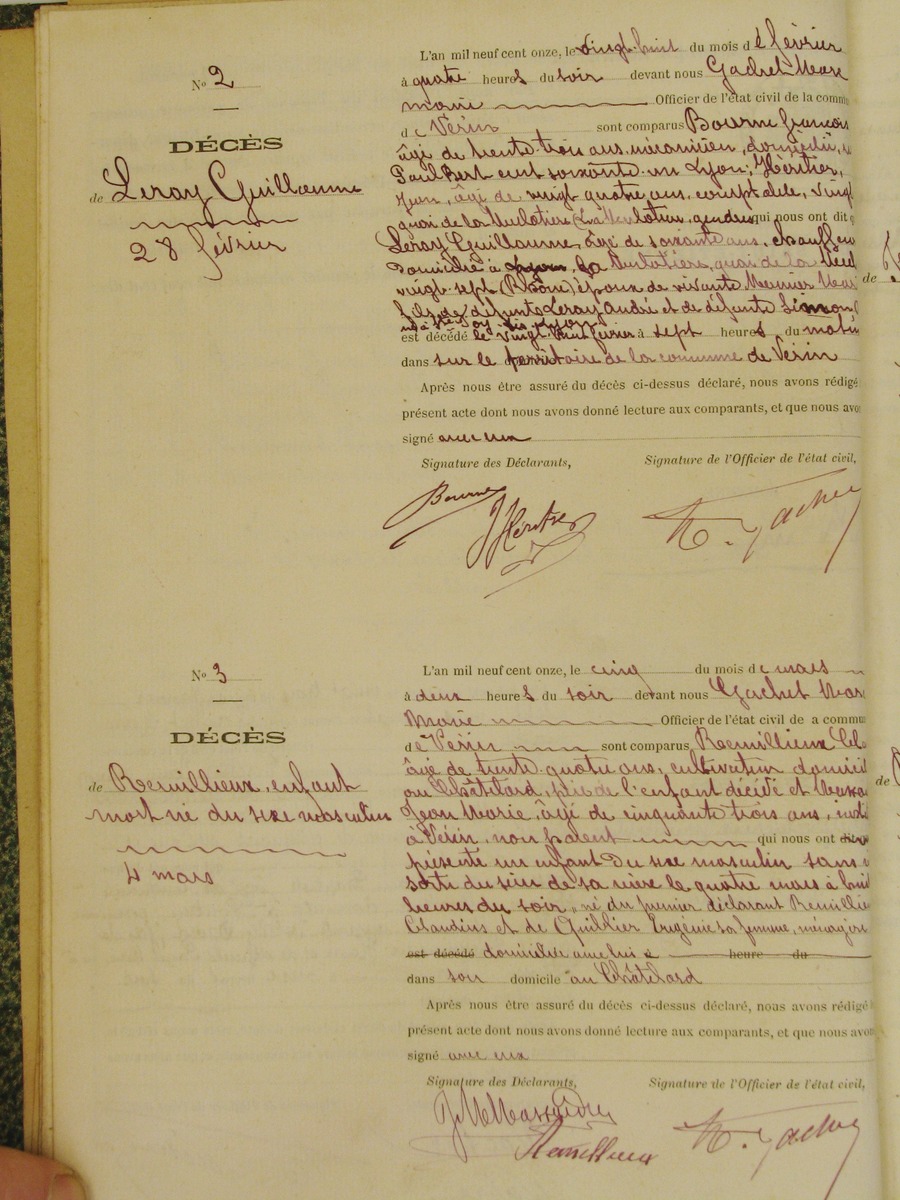 N° 2
DÉCÈS
de Leray Guillaume
28 février
L'an mil neuf cent onze, le vingt-huit du mois de février
à quatre heures du soir devant nous Gachet Marc
maire Officier de l'état civil de la commu
de Vérin sont comparus Bourne François
âgé de trente trois ans, mécanicien, domicilié,
Paul Bert cent soixante un Lyon; Héritier,
Jean, âgé de vingt quatre ans, comptable, vingt
quai de la Mulatière (La Mulatière, gendre, qui nous ont dit q
Leray Guillaume, âgé de soixante ans, chauffeur
domicilié à Lyon, La Mulatière, quai de la
vingt-sept (Rhône) époux de vivante Meunier Mar
fils de défunts Leray André et de défunte Simon
né à Ste Foy lès Lyon
est décédé le vingt huit février à sept heures du matin
dans sur le territoire de la commune de Vérin
Après nous être assuré du décès ci-dessus déclaré, nous avons rédigé
présent acte dont nous avons donné lecture aux comparants, et que nous avo
signé avec eux
Signature des Déclarants, Signature de l'Officier de l'état civil,
Bourne JHéritier M. Gachet
N° 3
DÉCÈS
de Remillieux, enfant
mort né du sexe masculin
4 mars
L'an mil neuf cent onze, le cinq du mois de mars
à deux heures du soir devant nous Gachet Marc
Maire Officier de l'état civil de a commu
de Vérin sont comparus Remillieux Cl
âgé de trente-quatre ans, cultivateur domicil
au Châtelard, père de l'enfant décédé et
Jean Marie, âgé de cinquante trois ans,
à Vérin, non parent qui nous ont
présenté un enfant du sexe masculin sans
sorti du sein de sa mère le quatre mars à huit
heures du soir, né du premier déclarant Remillie
Claudius et de Quiblier Eugénie sa femme, ménagère
est décédé domiciliée avec lui à heure du
dans son domicile au Châtelard
Après nous être assuré du décès ci-dessus déclaré, nous avons rédigé
présent acte dont nous avons donné lecture aux comparants, et que nous avo
signé avec eux
Signature des Déclarants, Signature de l'Officier de l'état civil,
Remillieux M. Gachet
de
de